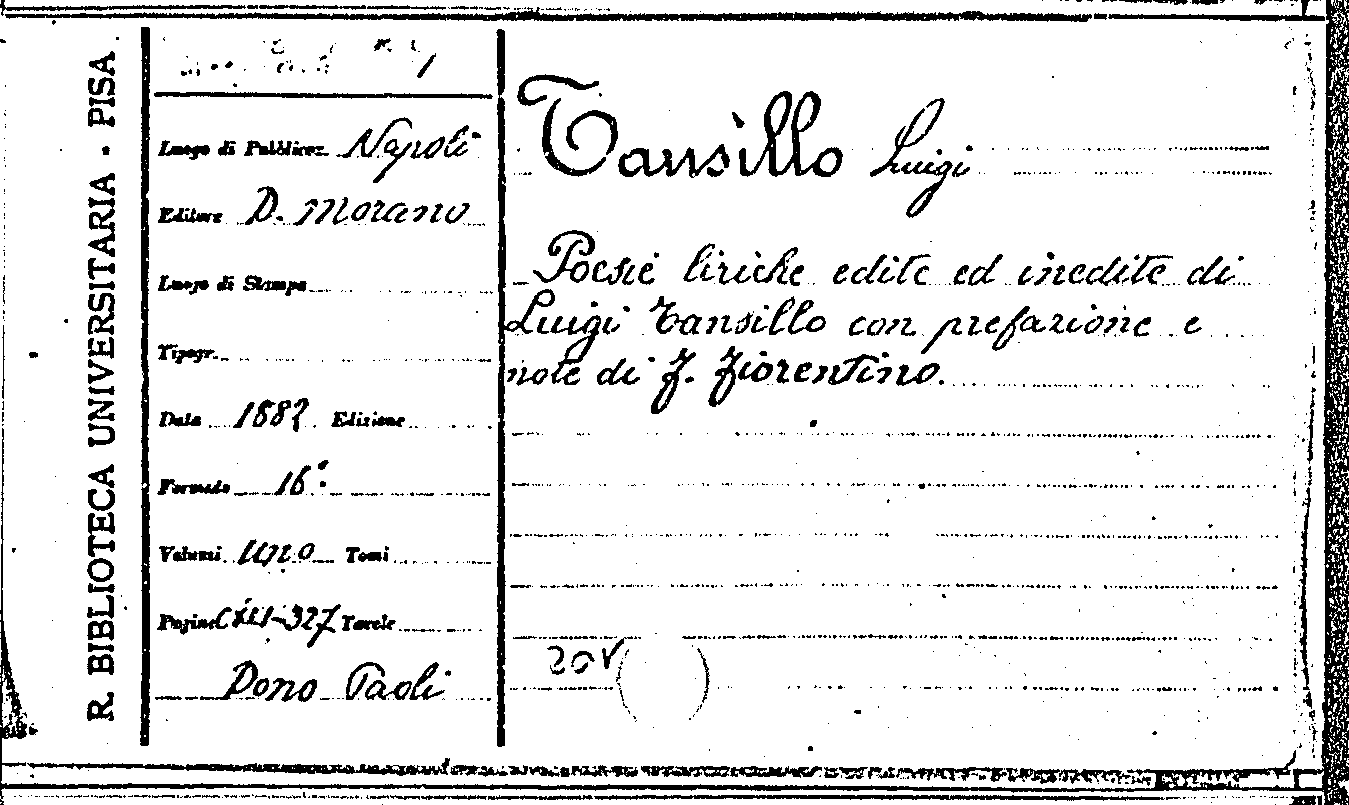 R. BIBLIOTECA UNIVERSITARIA - PISA
Luogo di Pubblicaz. Napoli
Editore D. Morano
Luogo di Stampa
Tipogr.
Data 1882 Edizione
Formato 16°.
Volumi uno Tomi
Pagine CXII-327 Tavole
Dono Paoli
Tansillo Luigi
Poesie liriche edite ed inedite di
Luigi Tansillo con prefazione e
note di F. Fiorentino.